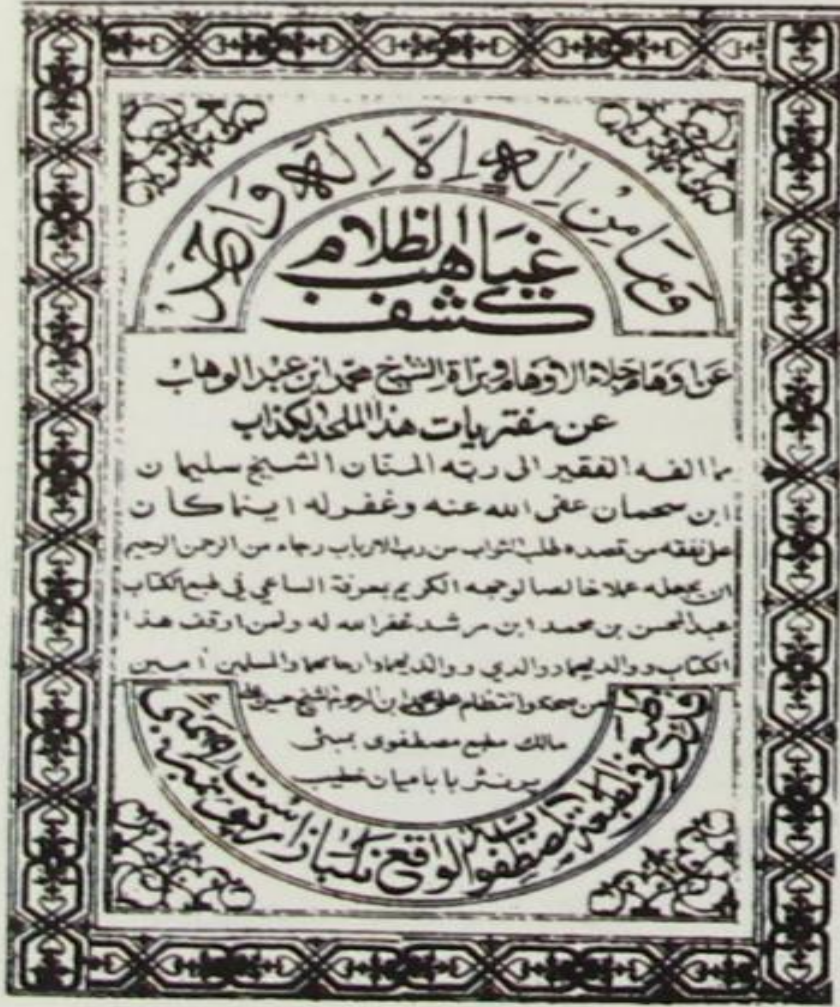 وَمَا مِنْ اِلٰهٍ اِلَّا اِلٰهٌ وَاحِدٌ
كشف
غياهب الظلام
عن اوهام جلاء الاوهام وبراة الشيخ محمد ابن عبد الوهاب
عن مفتريات هذا الملحد الكذاب
مما الفه الفقير الى ربه المنان الشيخ سليمان
ابن سحمان عفى الله عنه وغفر له اينما كان
على نفقه من قصده طلب الثواب من رب الارباب رجاء من الرحمن الرحيم
ان يجعله عملا خالصا لوجهه الكريم بمعرفة الساعي في طبع الكتاب
عبد المحسن بن محمد ابن مرشد غفر الله له ولمن اوقف هذا
الكتاب ووالديهما ووالدي ووالديهما وارحامهما والمسلمين امين
ابن المرحوم الشيخ
مالك مطبع مصطفوى بمبئى
پرنٹر بابا ميان خطيب
قد طبع في المطبعة المصطفوية الواقع